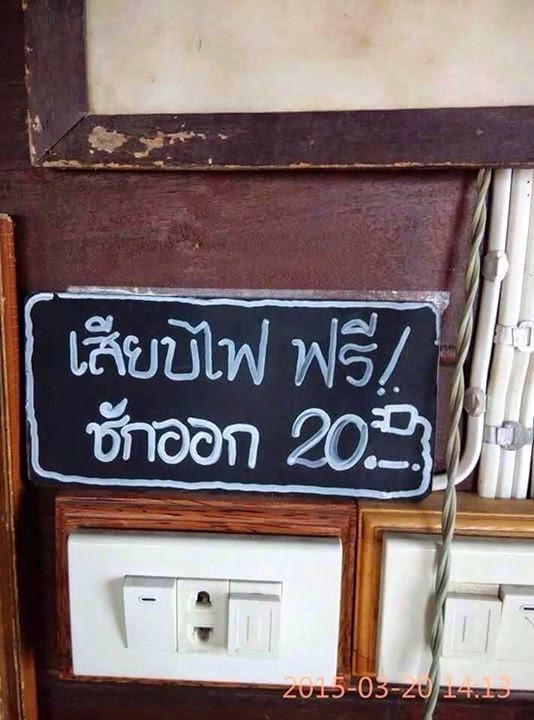 เสียบไฟ ฟรี!
ชักออก 20.-.
2015-03-20 14:13